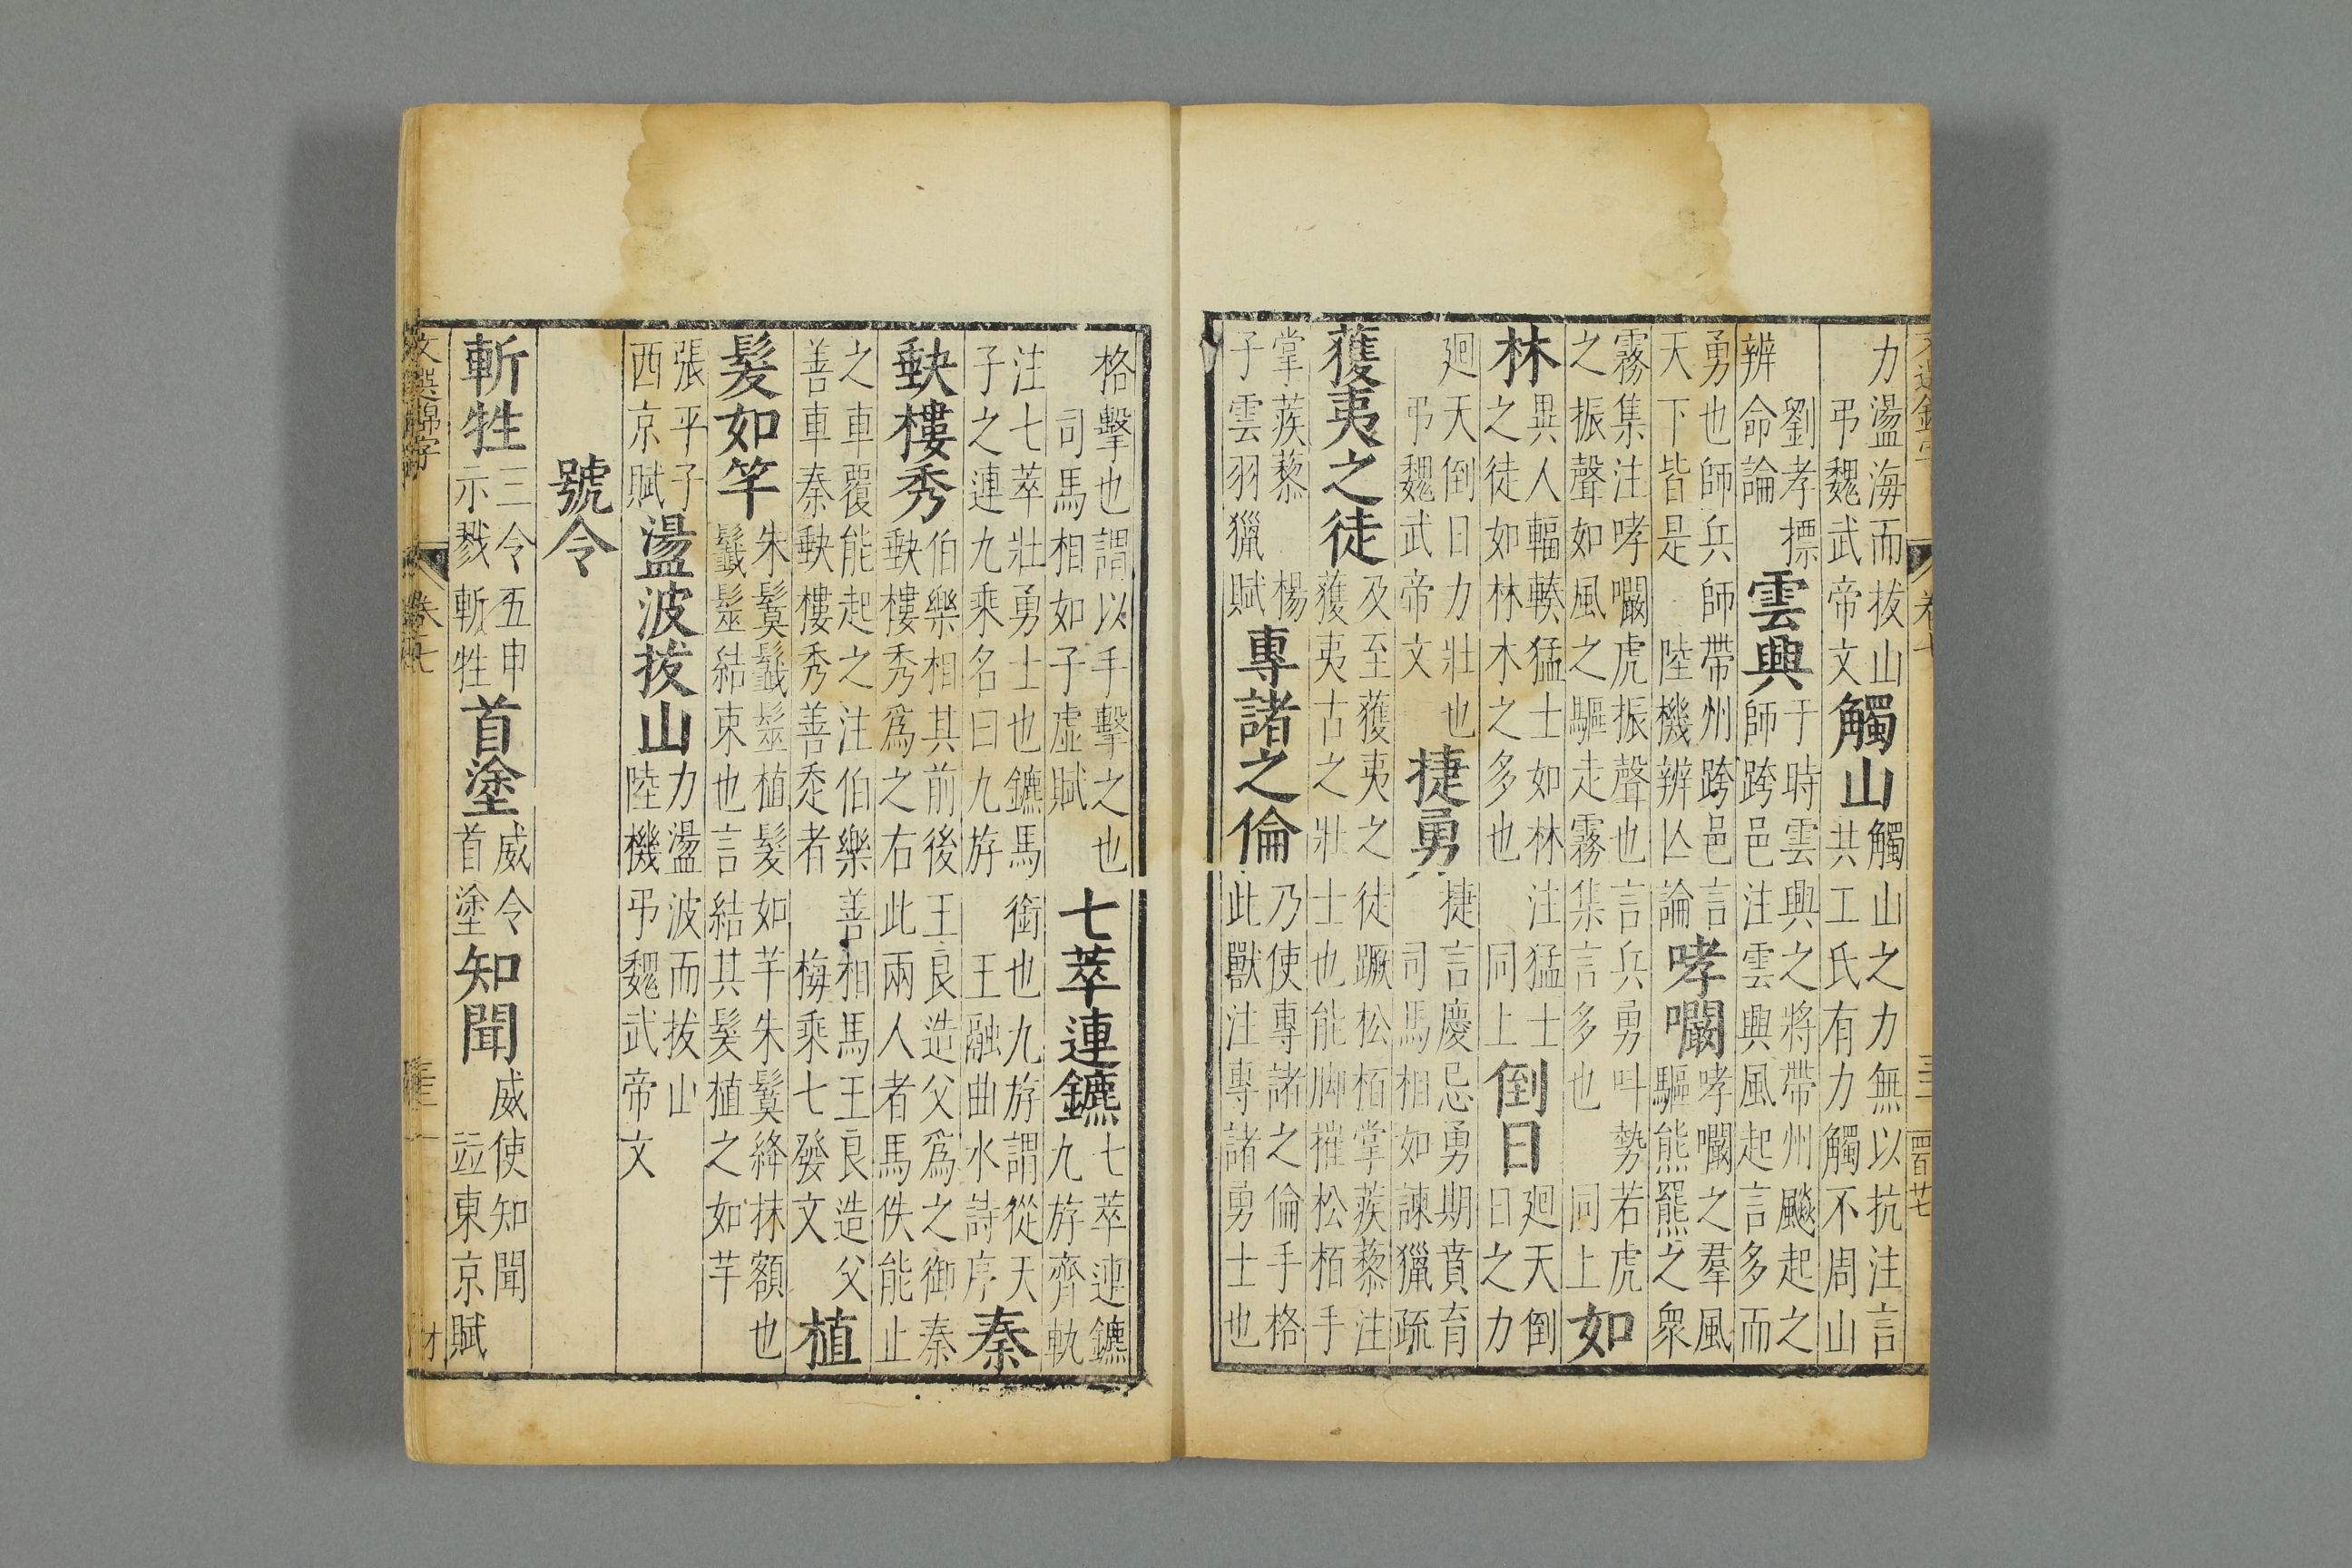 力盪海而拔山弔魏武帝文觸山觸山之力無以抗注言共工氏有力觸不周山
劉孝摽辨命論雲興于時雲興之將帶州飈起之師跨邑注雲興風起言多而
勇也師兵師帶州跨邑言天下皆是陸機辨亾論哮㘚哮㘚之羣風驅熊羆之衆
霧集注哮㘚虎振聲也言兵勇叫勢若虎之振聲如風之驅走霧集言多也同上如
林異人輻輳猛士如林注猛士之徒如林木之多也同上倒日廻天倒日之力
廻天倒日力壯也弔魏武帝文捷勇捷言慶忌勇期賁育司馬相如諫獵疏
蒦夷之徒及至獲夷之徒蹶松栢掌蒺藜注獲夷古之壯士也能脚摧松栢手
掌蒺藜楊子雲羽獵賦專諸之倫乃使專諸之倫手格此獸注專諸勇士也
格擊也謂以手擊之也司馬相如子虛賦七萃連鑣七萃連鑣九斿齊軌
注七萃壯勇士也鑣馬銜也九斿謂從天子之連九乘名曰九斿王融曲水詩序秦
缺樓秀伯樂相其前後王良造父爲之御秦缺樓秀爲之右此兩人者馬佚能止
之車覆能起之注伯樂善相馬王良造父善車秦缺樓秀善走者梅乘七發文植
髮如竿朱鬕䰐髽植髮如竿朱鬕絳抹額也䰐髽結束也言結其髮植之如竿
張平子西京賦盪波拔山力盪波而拔山陸機弔魏武帝文
號令
斬牲三令五申示戮斬牲首塗威令首塗知聞威使知聞並東京賦